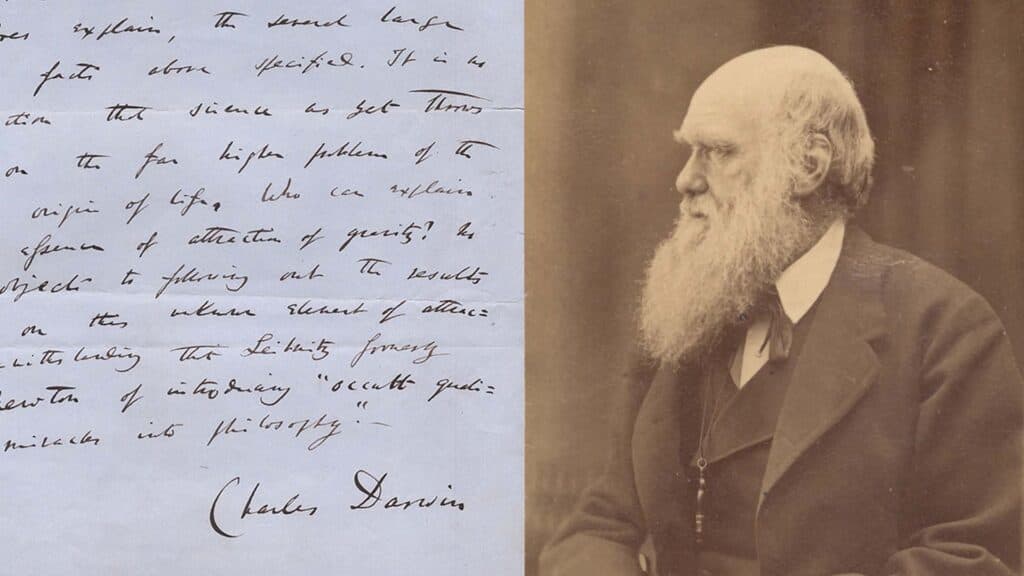 explain, the several large
facts above specified. It is no
tion that science as yet throws
on the far higher problem of the
origin of life. Who can explain
essence of attraction of gravity? No
objects to following out the results
on this unknown element of attrac=
withstanding that Leibnitz formerly
Newton of introducing "occult quali=
miracles into philosophy."—
Charles Darwin